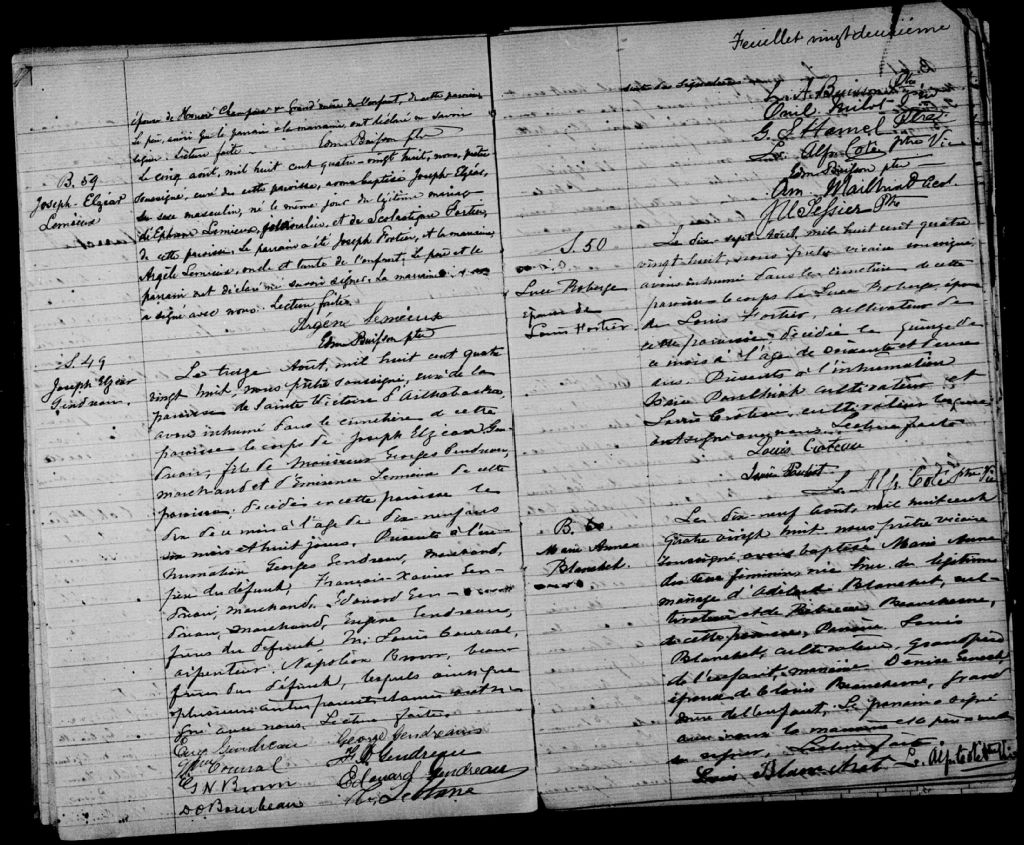 épouse de Honoré Champoux & Grand'mère de l'enfant, de cette paroisse.
Le père, ainsi que le parrain & la marraine, ont déclaré ne savoir
signer. Lecture faite. Edm Buisson ptre
B. 59
Joseph-Elzéar
Lemieux
Le cinq août, mil huit cent quatre-vingt huit, nous, prêtre
soussigné, curé de cette paroisse, avons baptisé Joseph Elzéar,
du sexe masculin, né le même jour du légitime mariage
d'Ephrem Lemieux, journalier, et de Scholastique Fortier,
de cette paroisse. Le parrain a été Joseph Fortier, et la marraine,
Argéli Lemieux, oncle et tante de l'enfant. Le père et le
parrain ont déclaré ne savoir signer. La marraine
a signé avec nous. Lecture faite.
Lemieux
Edm Buisson ptre
S. 49
Joseph Elzéar
Gendreau.
Le treize Août, mil huit cent quatre
vingt huit, nous prêtre soussigné, curé de la
paroisse de Sainte Victoire d'Arthabaska
avons inhumé dans le cimetière de cette
paroisse le corps de Joseph Elzéar Gen-
dreau, fils de Monsieur Georges Gendreau,
marchand et d'Emérence Lemieux de cette
paroisse, décédé en cette paroisse le
dix de ce mois à l'âge de dix neuf ans
six mois et huit jours. Présents à l'in-
humation Georges Gendreau, marchand,
père du défunt, François-Xavier Gen-
dreau, marchand, Edouard Gen-
dreau, marchand, Eugène Gendreau,
frères du défunt, M. Louis Courval,
arpenteur Napoléon Brown, beau
frère du défunt, lesquels ainsi que
plusieurs autres parents et amis ont si-
gné avec nous. Lecture faite.
Eug Gendreau George Gendreau
Courval Gendreau
G N Brown Edouard Gendreau
D O Bourbeau Leblanc
Feuillet vingt deuxième
suite des signatures
L. A. Buisson Ptre
Omil Milot
G. S. Hamel Ptre
L. Alfr Coté Ptre Vic
Edm Buisson ptre
Am. Mailhiot Eccl.
Tessier Ptre
S. 50
Luce Roberge
épouse de
Louis Fortier
Le dix-sept Août, mil huit cent quatre
vingt huit, nous prêtre vicaire soussigné,
avons inhumé dans le cimetière de cette
paroisse le corps de Luce Roberge, épouse
de Louis Fortier, cultivateur de
cette paroisse, décédée le quinze de
ce mois à l'âge de soixante et
ans. Présents à l'inhumation
cultivateur et
Louis Croteau, cultivateur lesquels
ont signé avec nous. Lecture faite
Louis Croteau
L. Alfr. Coté Ptre Vic
B.
Marie Anne
Blanchet.
Le dix neuf Août, mil huit cent
quatre vingt huit nous prêtre vicaire
soussigné avons baptisé Marie Anne
du sexe féminin née hier du légitime
mariage d'Adélard Blanchet, cul-
tivateur et de Rébecca Beauchesne,
de cette paroisse. Parrain Louis
Blanchet, cultivateur, Grand père
de l'enfant, marraine Denise
épouse de Louis Beauchesne, grand
mère de l'enfant. Le parrain a signé
avec nous la marraine et le père n'ont
su signer. Lecture faite
Louis Blanchet L. Alfr Coté Ptre Vic